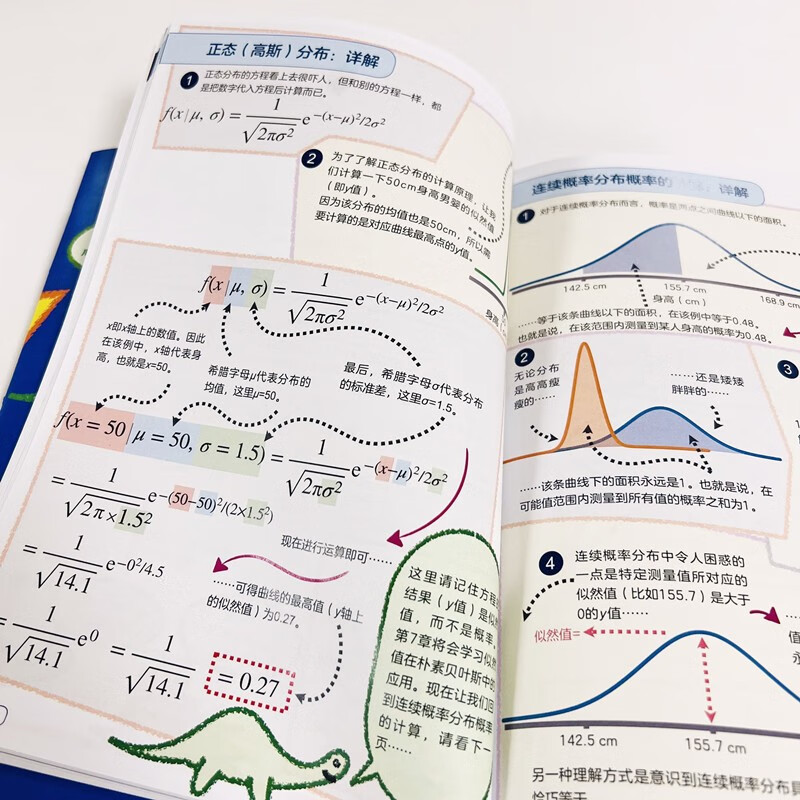 正态（高斯）分布：详解
1
正态分布的方程看上去很吓人，但和别的方程一样，都
是把数字代入方程后计算而已。
f(x|μ, σ) = 1/√(2πσ²) e^(−(x−μ)²/2σ²)
2
为了了解正态分布的计算原理，让我
们计算一下50cm身高男婴的似然值
（即y值）。
因为该分布的均值也是50cm，所以需
要计算的是对应曲线最高点的y值。
身高
f(x|μ, σ) = 1/√(2πσ²) e^(−(x−μ)²/2σ²)
x即x轴上的数值。因此
在该例中，x轴代表身
高，也就是x=50。
希腊字母μ代表分布的
均值，这里μ=50。
最后，希腊字母σ代表分布
的标准差，这里σ=1.5。
f(x = 50|μ = 50, σ = 1.5) = 1/√(2πσ²) e^(−(x−μ)²/2σ²)
= 1/√(2π×1.5²) e^(−(50−50)²/(2×1.5²))
现在进行运算即可……
= 1/√14.1 e^(−0²/4.5)
……可得曲线的最高值（y轴上
的似然值）为0.27。
= 1/√14.1 e⁰ = 1/√14.1 = 0.27
这里请记住方程的
结果（y值）是似然
值，而不是概率。
第7章将会学习似然
值在朴素贝叶斯中的
应用。现在让我们回
到连续概率分布概率
的计算，请看下一
页……
连续概率分布概率的 详解
1
对于连续概率分布而言，概率是两点之间曲线以下的面积。
142.5 cm
155.7 cm
168.9 cm
身高（cm）
……等于该条曲线以下的面积，在该例中等于0.48。
也就是说，在该范围内测量到某人身高的概率为0.48。
2
无论分布
是高高瘦
瘦的……
……还是矮矮
胖胖的……
3
……该条曲线下的面积永远是1。也就是说，在
可能值范围内测量到所有值的概率之和为1。
4
连续概率分布中令人困惑的
一点是特定测量值所对应的
似然值（比如155.7）是大于
0的y值……
似然值=
142.5 cm
155.7 cm
另一种理解方式是意识到连续概率分布具
恰巧等于